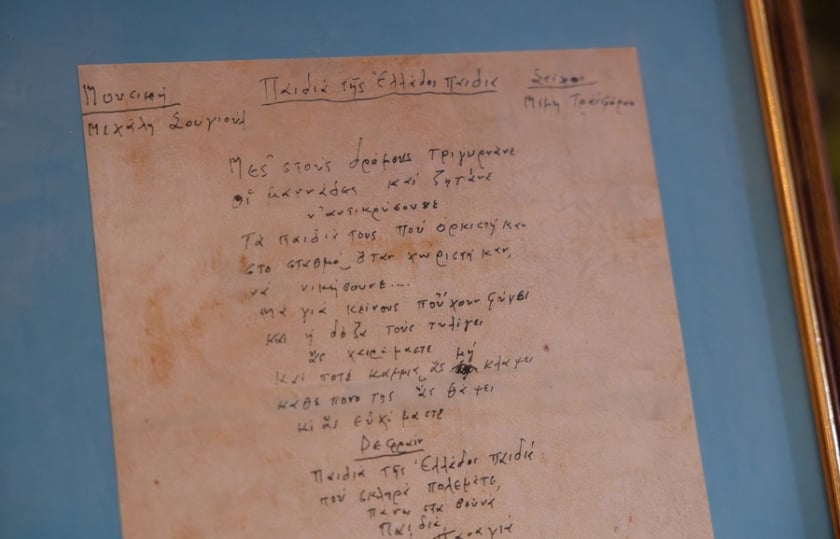 Μουσική
Μιχάλη Σουγιούλ
Παιδιά τῆς Ἑλλάδος παιδιά
Στίχοι
Μίμη Τραϊφόρου
Μες' στους δρόμους τριγυρνᾶνε
οἱ μαννάδες καί ζητᾶνε
ν' ἀντικρύσουνε
Τά παιδιά τους πού ὁρκιστῆκαν
στο σταθμό, ὅταν χωριστῆκαν,
νά νικήσουνε....
Μα γιά κείνους πού 'χουν φύγει
και ἡ δόξα τους τυλίγει
ἄς χαιρόμαστε
και ποτέ καμμιά ἄς μή κλάψει
κάθε πόνο της ἄς θάψει
κι ἄς εὐχόμαστε
Ρεφραίν
Παιδιά τῆς Ἑλλάδος παιδιά
πού σκληρά πολεμᾶτε,
πάνω στα βουνά
Παιδιά,
Παναγιά